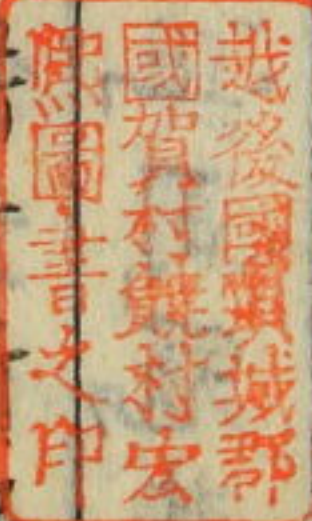 越後國頸城郡
國賀村饒村宏
凞圖書之印